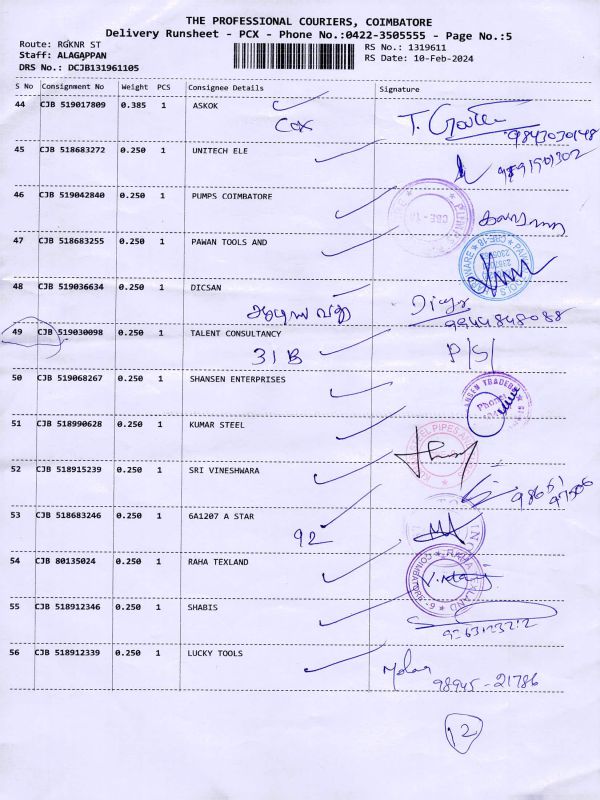 THE PROFESSIONAL COURIERS, COIMBATORE
Delivery Runsheet - PCX - Phone No.:0422-3505555 - Page No.:5
Route: RGKNR ST
RS No.: 1319611
Staff: ALAGAPPAN
RS Date: 10-Feb-2024
DRS No.: DCJB131961105
S No Consignment No Weight PCS Consignee Details Signature
44 CJB 519017809 0.385 1 ASKOK
9843030148
45 CJB 518683272 0.250 1 UNITECH ELE
46 CJB 519042840 0.250 1 PUMPS COIMBATORE
47 CJB 518683255 0.250 1 PAWAN TOOLS AND
48 CJB 519036634 0.250 1 DICSAN
49 CJB 519030098 0.250 1 TALENT CONSULTANCY
31B P/S/
50 CJB 519068267 0.250 1 SHANSEN ENTERPRISES
51 CJB 518990628 0.250 1 KUMAR STEEL
52 CJB 518915239 0.250 1 SRI VINESHWARA
53 CJB 518683246 0.250 1 6A1207 A STAR
92
54 CJB 80135024 0.250 1 RAHA TEXLAND
55 CJB 518912346 0.250 1 SHABIS
56 CJB 518912339 0.250 1 LUCKY TOOLS
98945-21786
12